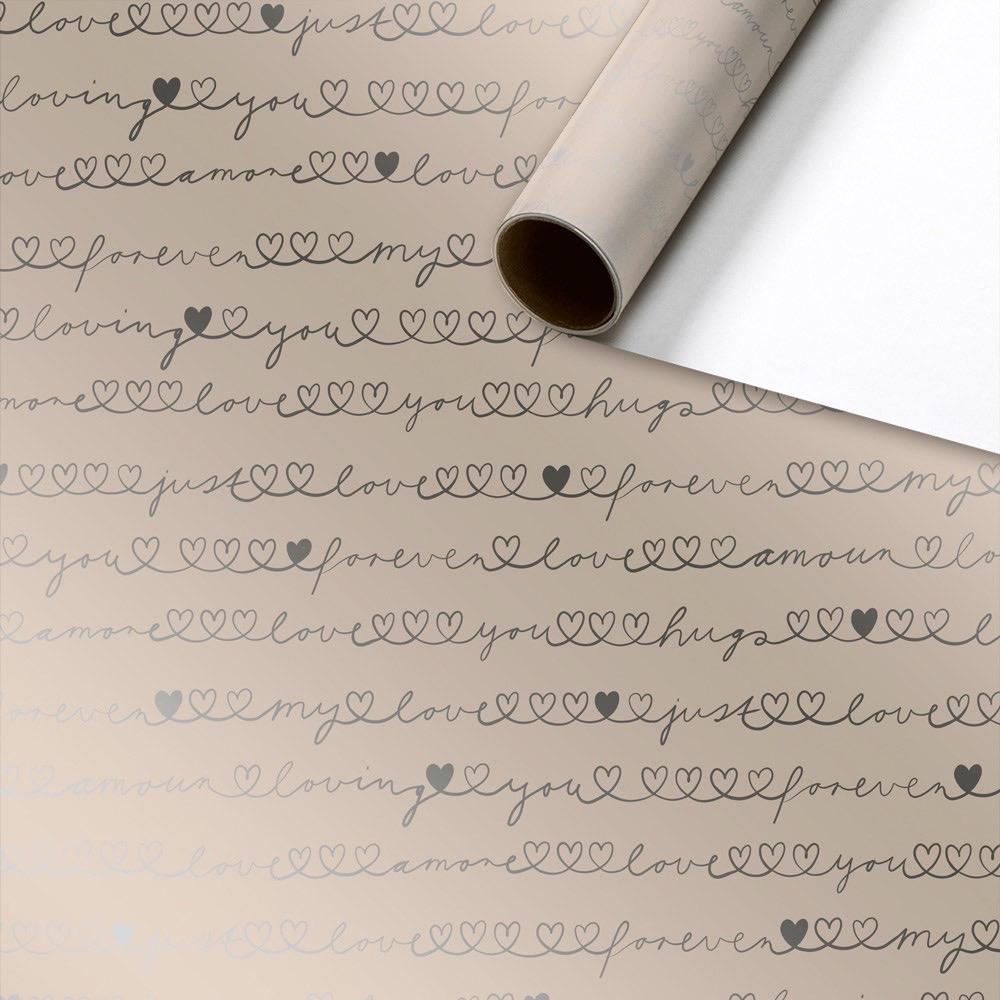 love just love
loving you for
ove amore love
forever my
loving you f
more love you hugs
just love forever my
you forever love amour lo
amore love you hugs l
orever my love just love
amour loving you forever
love amore love you
just love forever my